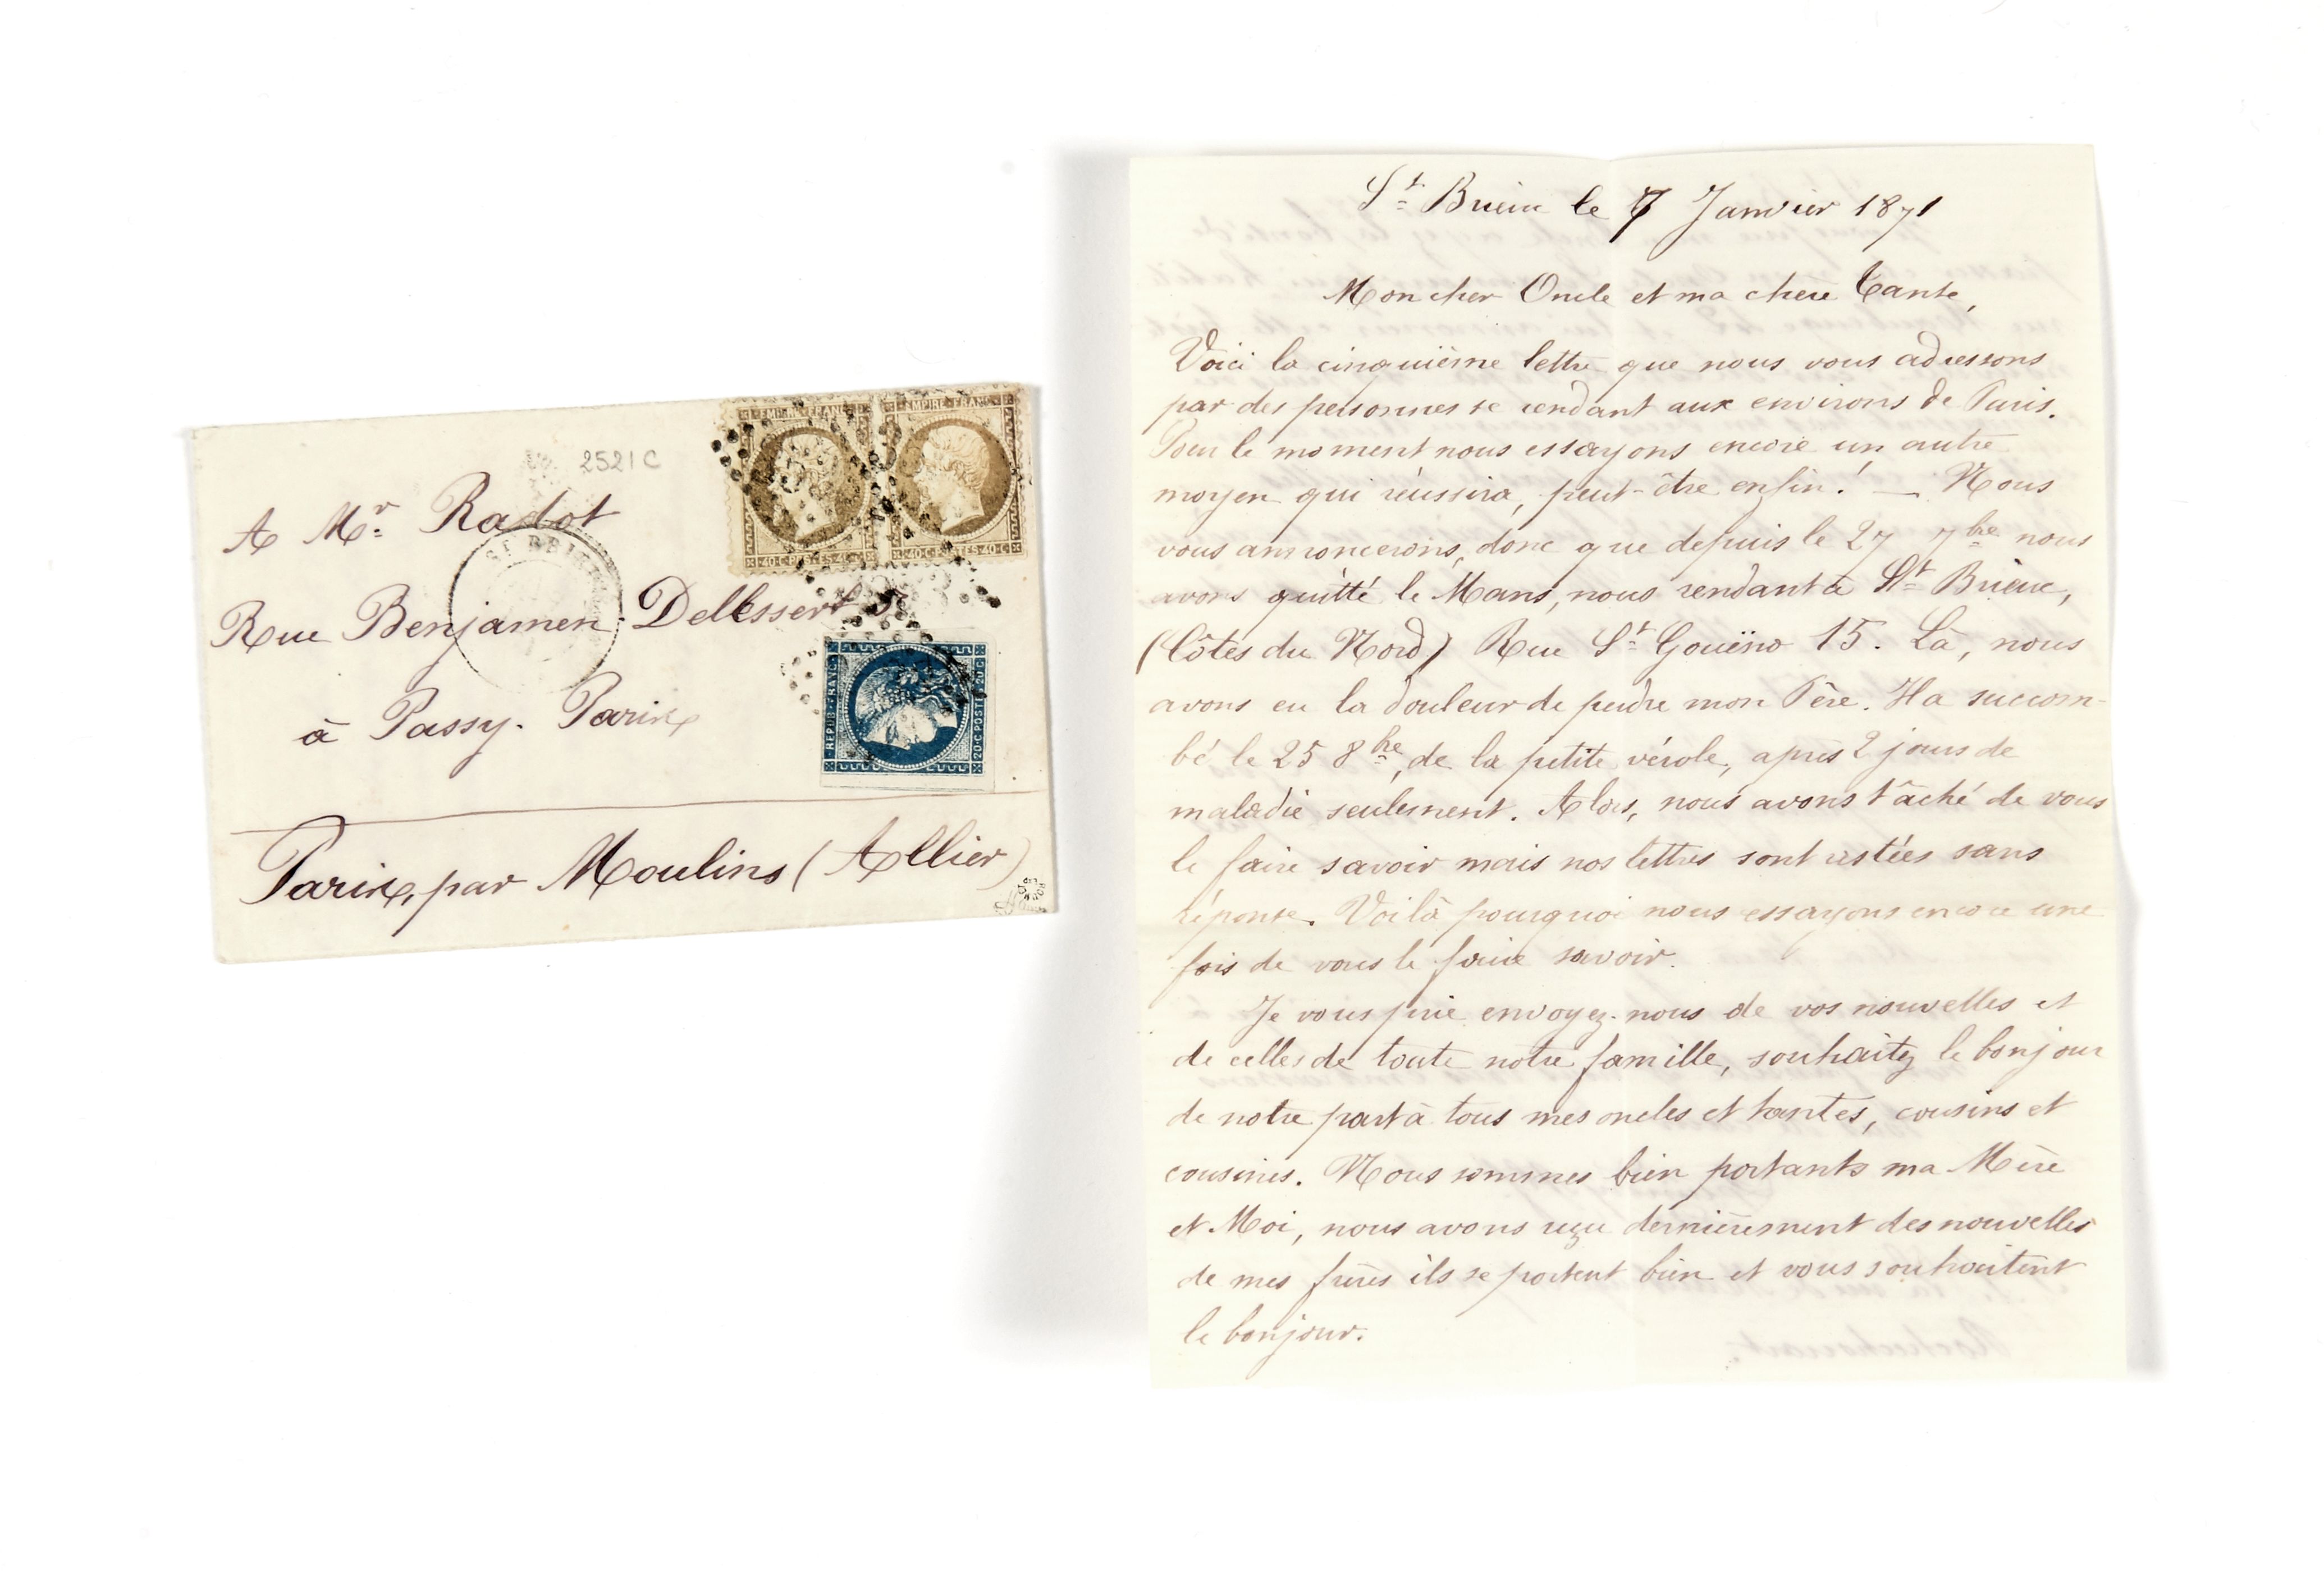 2521 C
A Mr. Radot
Rue Benjamen Dellessert 5
à Passy. Paris
Paris, par Moulins (Allier)
EMPIRE FRANC
40 C POSTES 40 C
EMPIRE FRANC
40 C POSTES 40 C
REPUB FRANC
20 C POSTE 20 C
ST BRIEUC
St. Brieuc le 7 Janvier 1871
Mon cher Oncle et ma chère Tante,
Voici la cinquième lettre que nous vous adressons
par des personnes se rendant aux environs de Paris.
Pour le moment nous essayons encore un autre
moyen qui réussira, peut-être enfin! — Nous
vous annoncerons, donc que depuis le 27 7bre nous
avons quitté le Mans, nous rendant à St. Brieuc,
(Côtes du Nord) Rue St. Gouëno 15. Là, nous
avons eu la douleur de perdre mon Père. Il a succom-
bé le 25 8bre, de la petite vérole, après 2 jours de
maladie seulement. Alors, nous avons tâché de vous
le faire savoir mais nos lettres sont restées sans
réponse. Voilà pourquoi nous essayons encore une
fois de vous le faire savoir.
Je vous prie envoyez-nous de vos nouvelles et
de celles de toute notre famille, souhaitez le bonjour
de notre part à tous mes oncles et tantes, cousins et
cousines. Nous sommes bien portants ma Mère
et Moi, nous avons reçu dernièrement des nouvelles
de mes frères ils se portent bien et vous souhaitent
le bonjour.